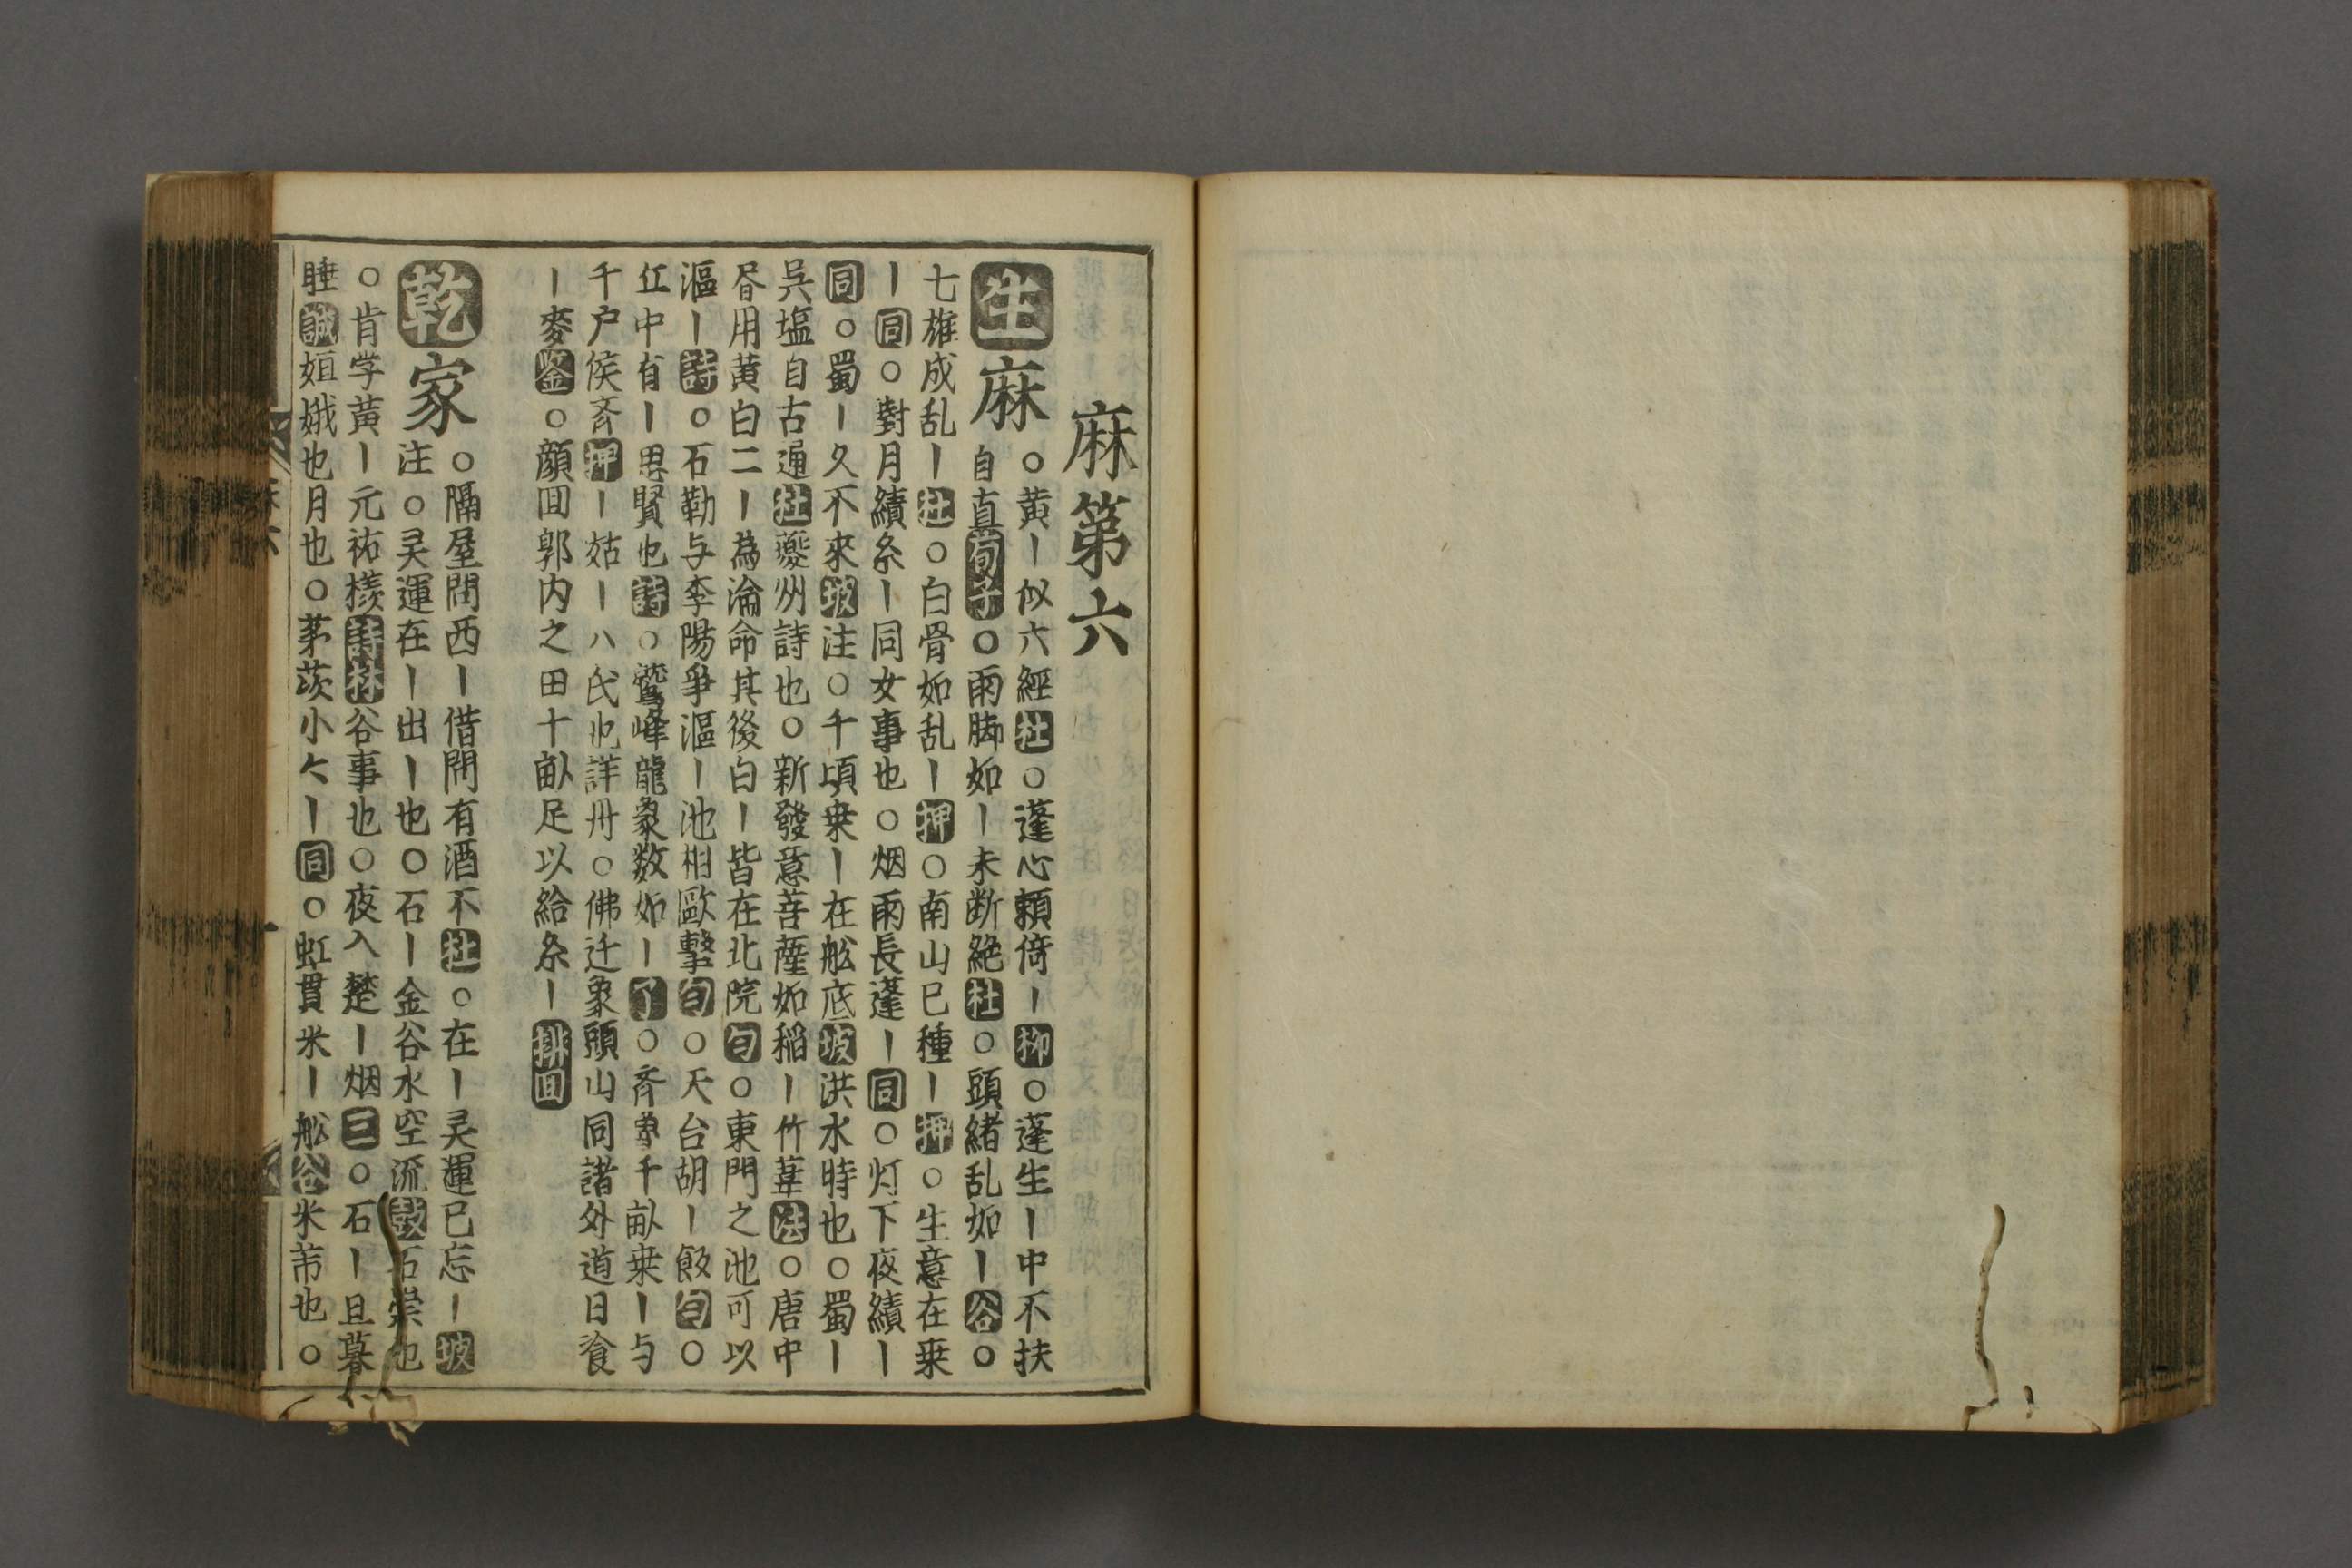 麻第六
生麻○黄ー似六經杜○蓬心頼倚ー柳○蓬生ー中不扶
自直荀子○雨脚如ー未断絶杜○頭緒乱如ー谷○
七雄成乱ー杜○白骨如乱ー押○南山巳種ー押○生意在桒
ー同○對月績糸ー同女事也○烟雨長蓬ー同○灯下夜績ー
同○蜀ー久不來坡注○千頃桒ー在舩底坡洪水時也○蜀ー
呉塩自古通杜夔州詩也○新發意菩薩如稲ー竹葦法○唐中
昏用黄白二ー為淪命其後白ー皆在北院句○東門之池可以
漚ー詩○石勒与李陽爭漚ー池相歐擊句○天台胡ー飯句○
丘中有ー思賢也詩○鷲峰龍象数如ー了○斉魯千畝桒ー与
千户侯斉押ー姑ー八氏也詳冊○佛迁象頭山同諸外道日飡
ー麥鉴○顔回郭内之田十畝足以給糸ー排回
乾家○隔屋問西ー借問有酒不杜○在ー灵運已忘ー坡
注○灵運在ー出ー也○石ー金谷水空流鼓石崇也
○肯学黄ー元祐様詩林谷事也○夜入楚ー烟三○石ー且暮
睡誠姮娥也月也○茅茨小〻ー同○虹貫米ー舩谷米芾也○